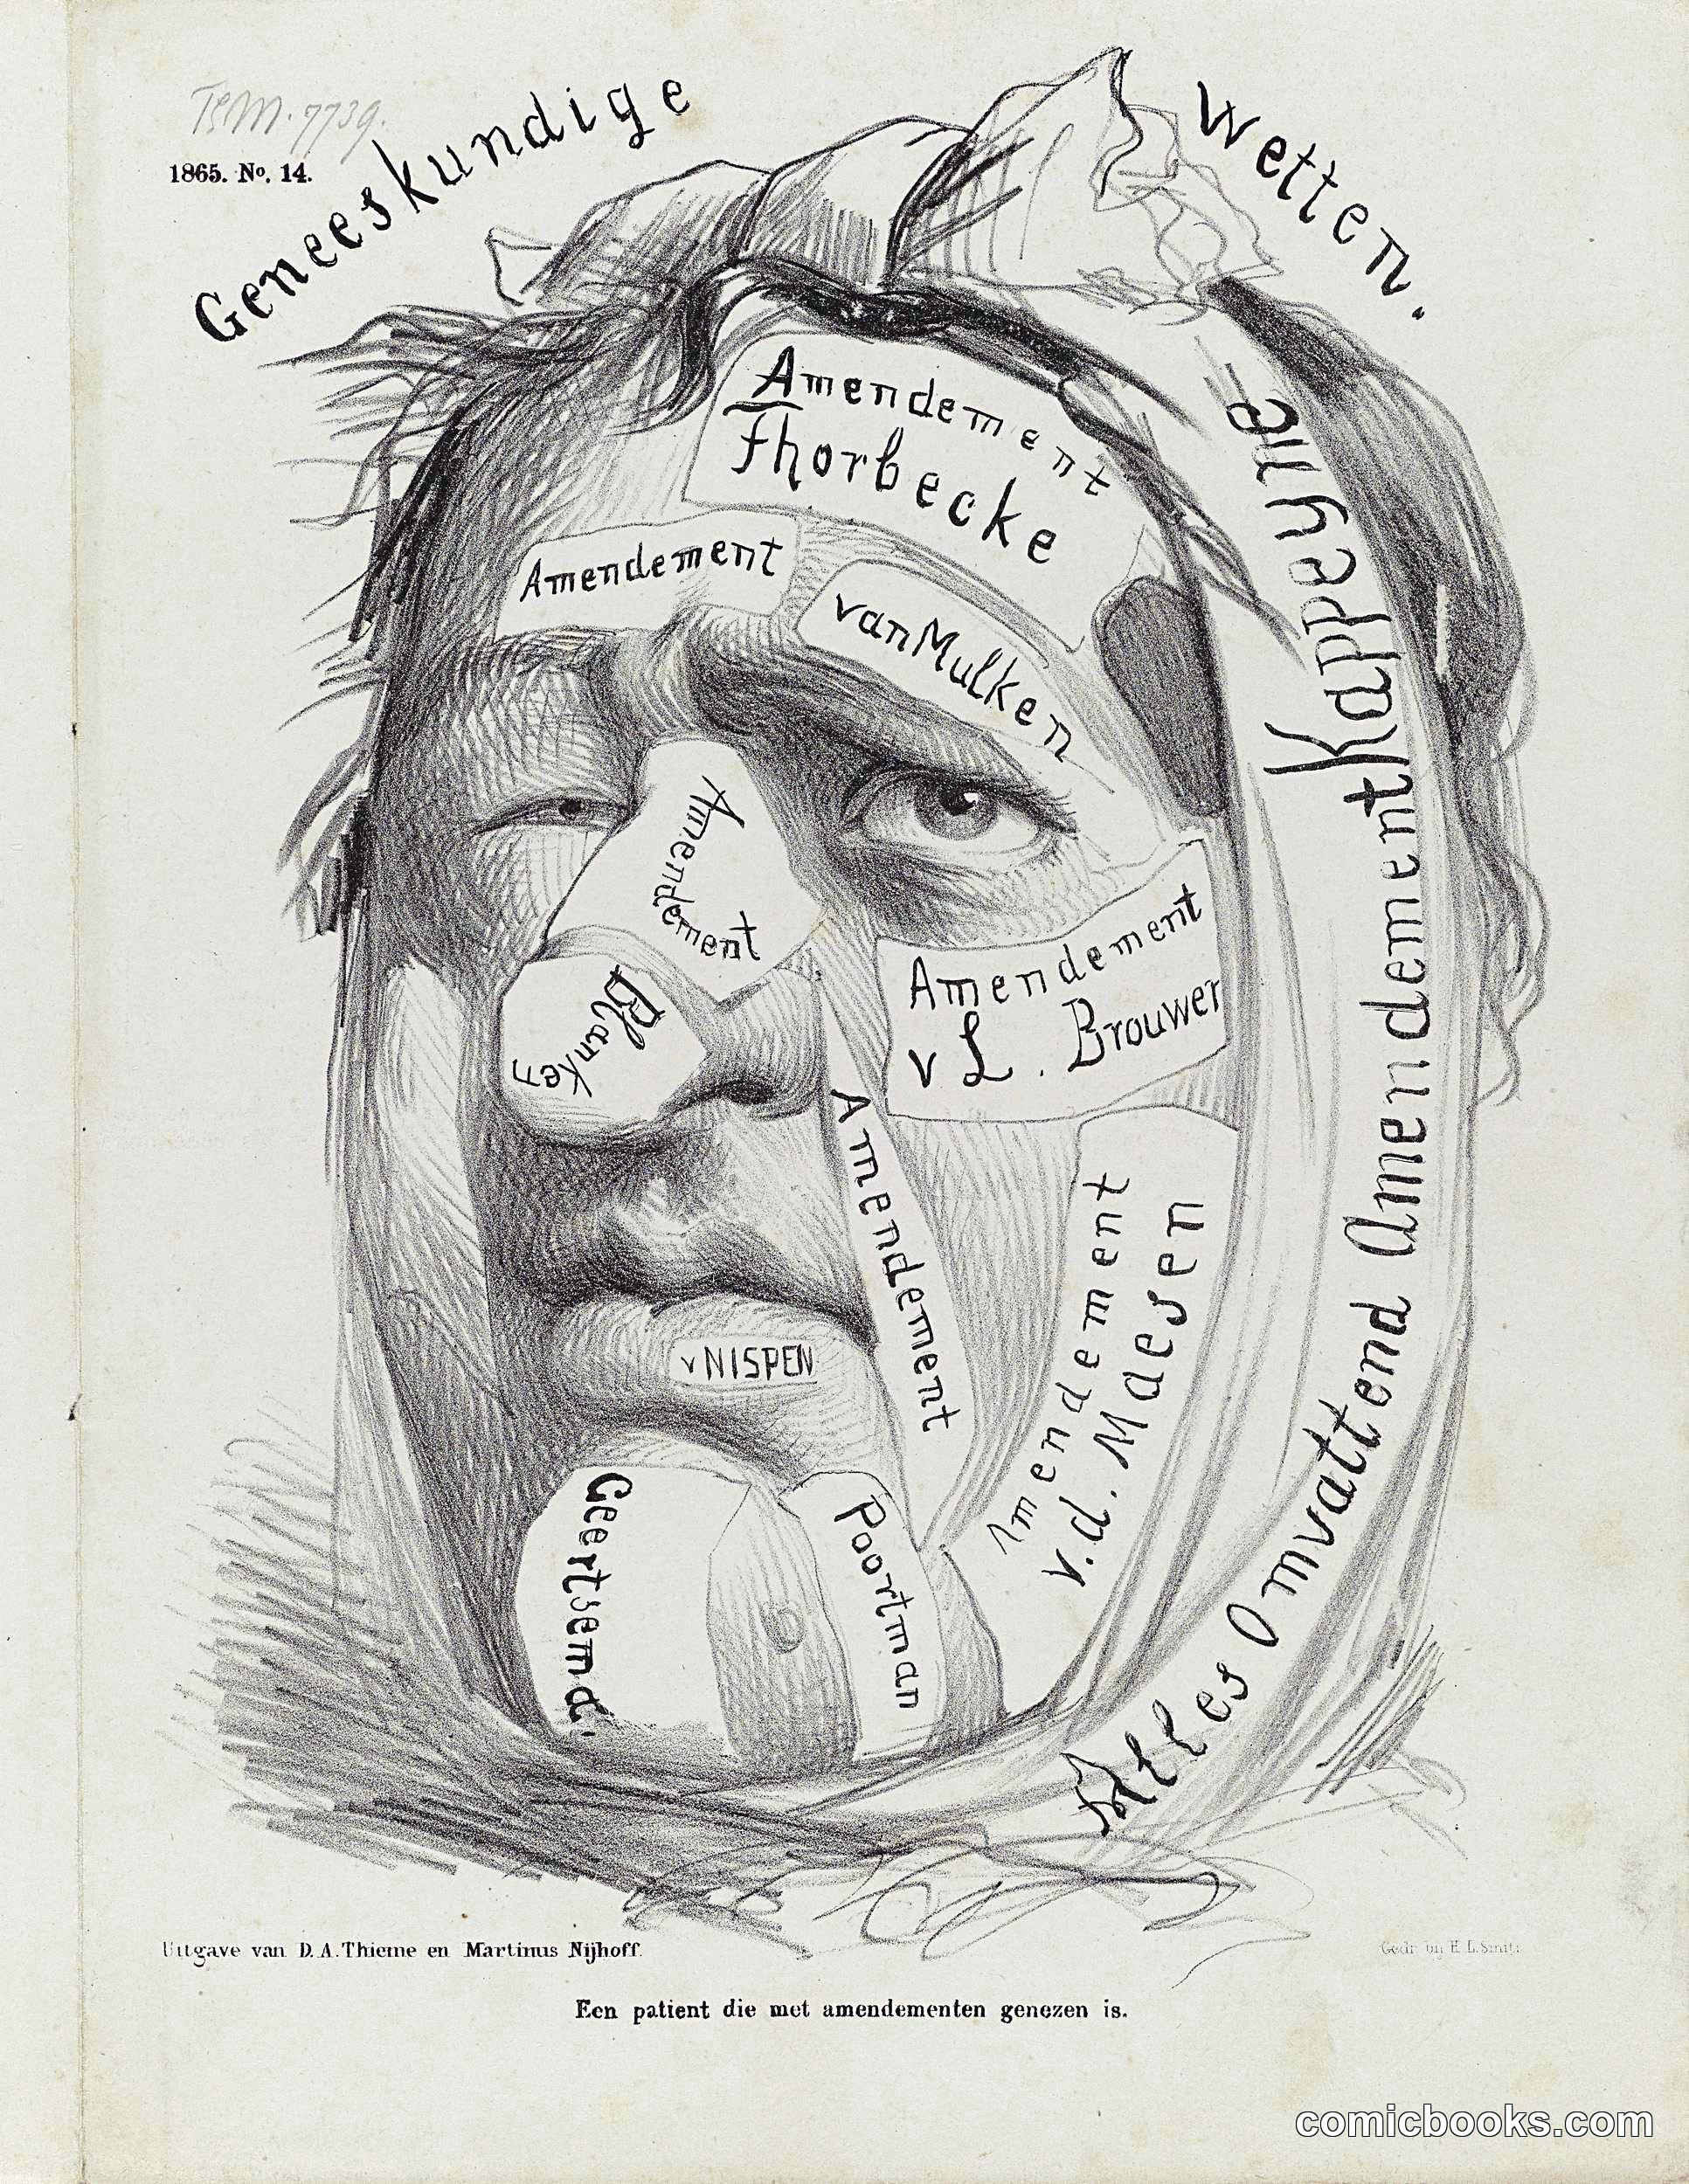 1865. No. 14.
Geneeskundige Wetten.
Amendement
Thorbecke
Amendement
van Mulken
Amendement
Blanken
Amendement
v L. Brouwer
Amendement
Amendement
v.d. Maesen
v NISPEN
Geertsema.
Poortman
Alles Omvattend Amendement Kappeyne
Uitgave van D. A. Thieme en Martinus Nijhoff.
Een patient die met amendementen genezen is.
comicbooks.com